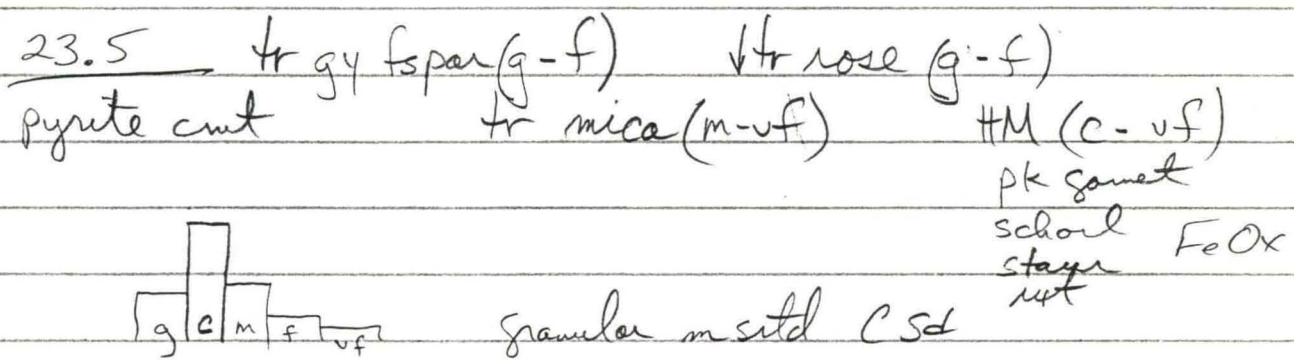 23.5 tr gy fspar (g-f) ↓tr rose (g-f)
pyrite cmt tr mica (m-vf) HM (c-vf)
pk garnet
school FeOx
staur
rut
g c m f vf granular m srtd C Sd